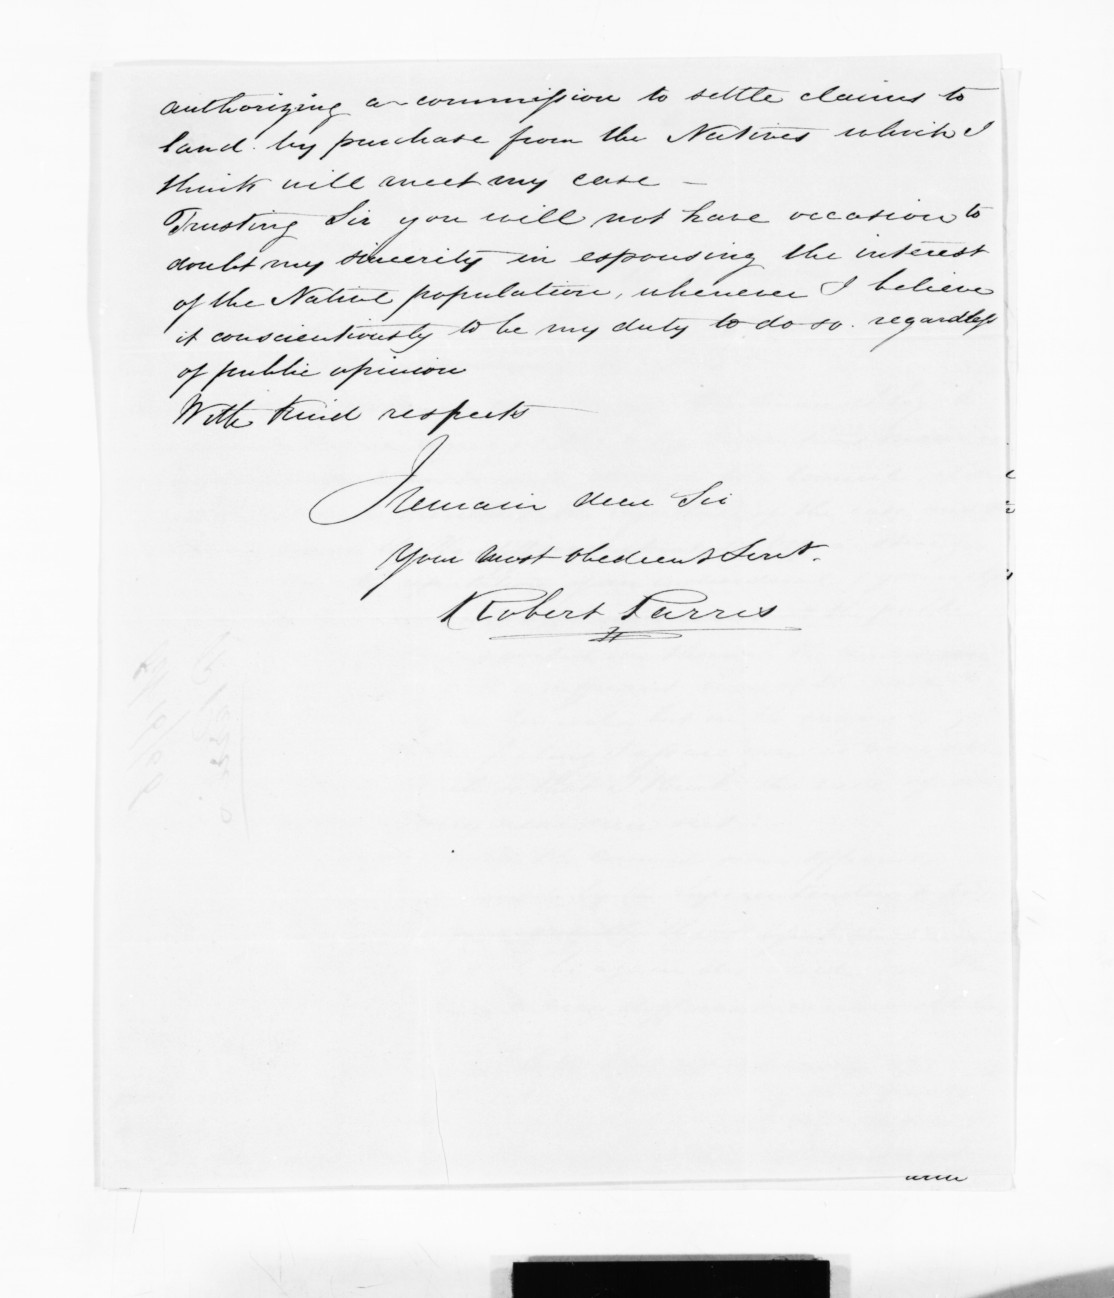 authorizing a commission to settle claims to
land. by purchase from the Natives which I
think will meet my case —
Trusting Sir you will not have occasion to
doubt my sincerity in espousing the interest
of the Native population, whenever I believe
it conscientiously to be my duty to do so. regardless
of public opinion
With Kind respects
I remain dear Sir
Your most obedient Servt.
Robert Parris